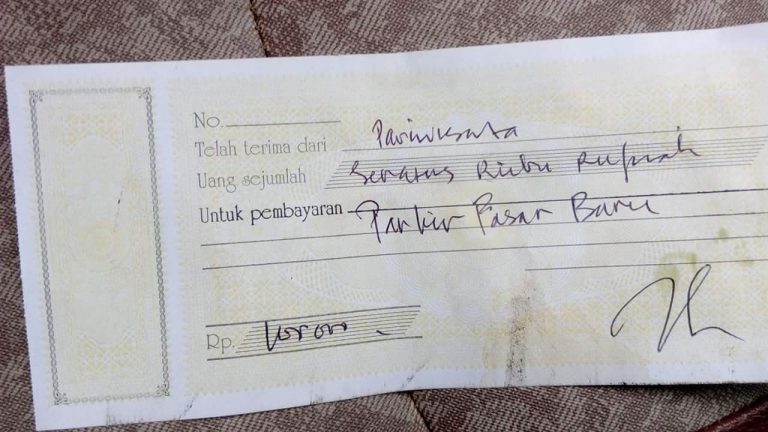 No.
Telah terima dari Pariwisata
Uang sejumlah Seratus Ribu Rupiah
Untuk pembayaran Parkir Pasar Baru
Rp.